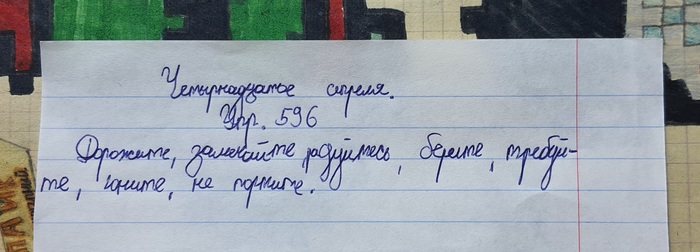 Четырнадцатое апреля.
Упр. 596
Дорожите, замечайте радуйтесь, берите, требуй-
те, гоните, не портите.